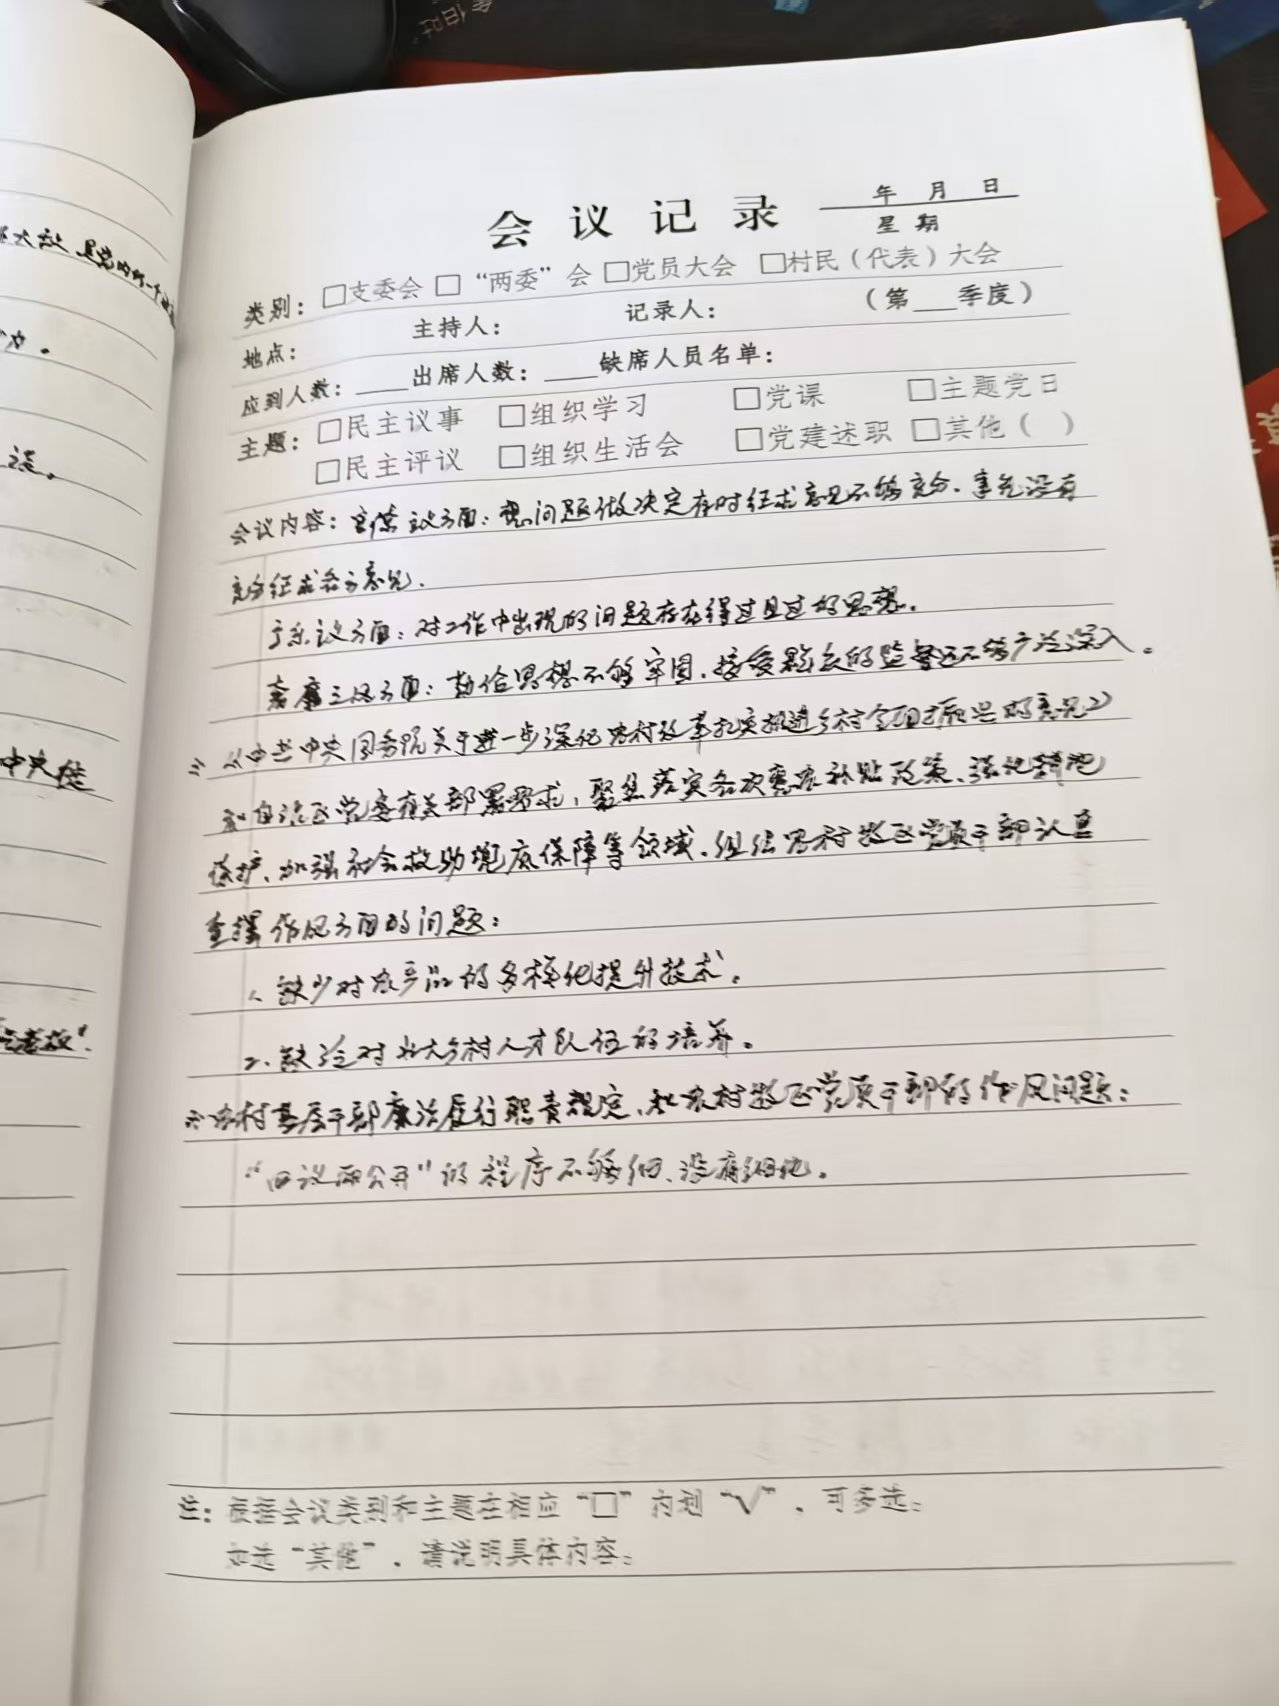 大敌 是党内的一个
力。
谈。
中央
老板".
会议记录
年 月 日
星期
类别：□支委会 □“两委”会 □党员大会 □村民（代表）大会
地点： 主持人： 记录人： （第___季度）
应到人数：____出席人数：____缺席人员名单：
主题：□民主议事 □组织学习 □党课 □主题党日
□民主评议 □组织生活会 □党建述职 □其他（ ）
会议内容：官僚主义方面：想问题做决定有时征求意见不够充分，事先没有
充分征求各方意见.
享乐主义方面：对工作中出现的问题存在得过且过的思想。
奢靡之风方面：勤俭思想不够牢固，接受群众的监督还不够广泛深入。
《中共中央国务院关于进一步深化农村改革扎实推进乡村全面振兴的意见》
和自治区党委有关部署要求，聚焦落实各项惠农补贴政策、强化耕地
保护、加强社会救助兜底保障等领域，组织农村牧区党员干部认真
查摆作风方面的问题：
1、缺少对农产品的多样化提升技术。
2、缺乏对壮大乡村人才队伍的培养。
农村基层干部廉洁履行职责规定、和农村牧区党员干部的作风问题：
“四议两公开”的程序不够细、没有细化。
注：根据会议类别和主题在相应“□”内划“√”，可多选；
如选“其他”，请说明具体内容；